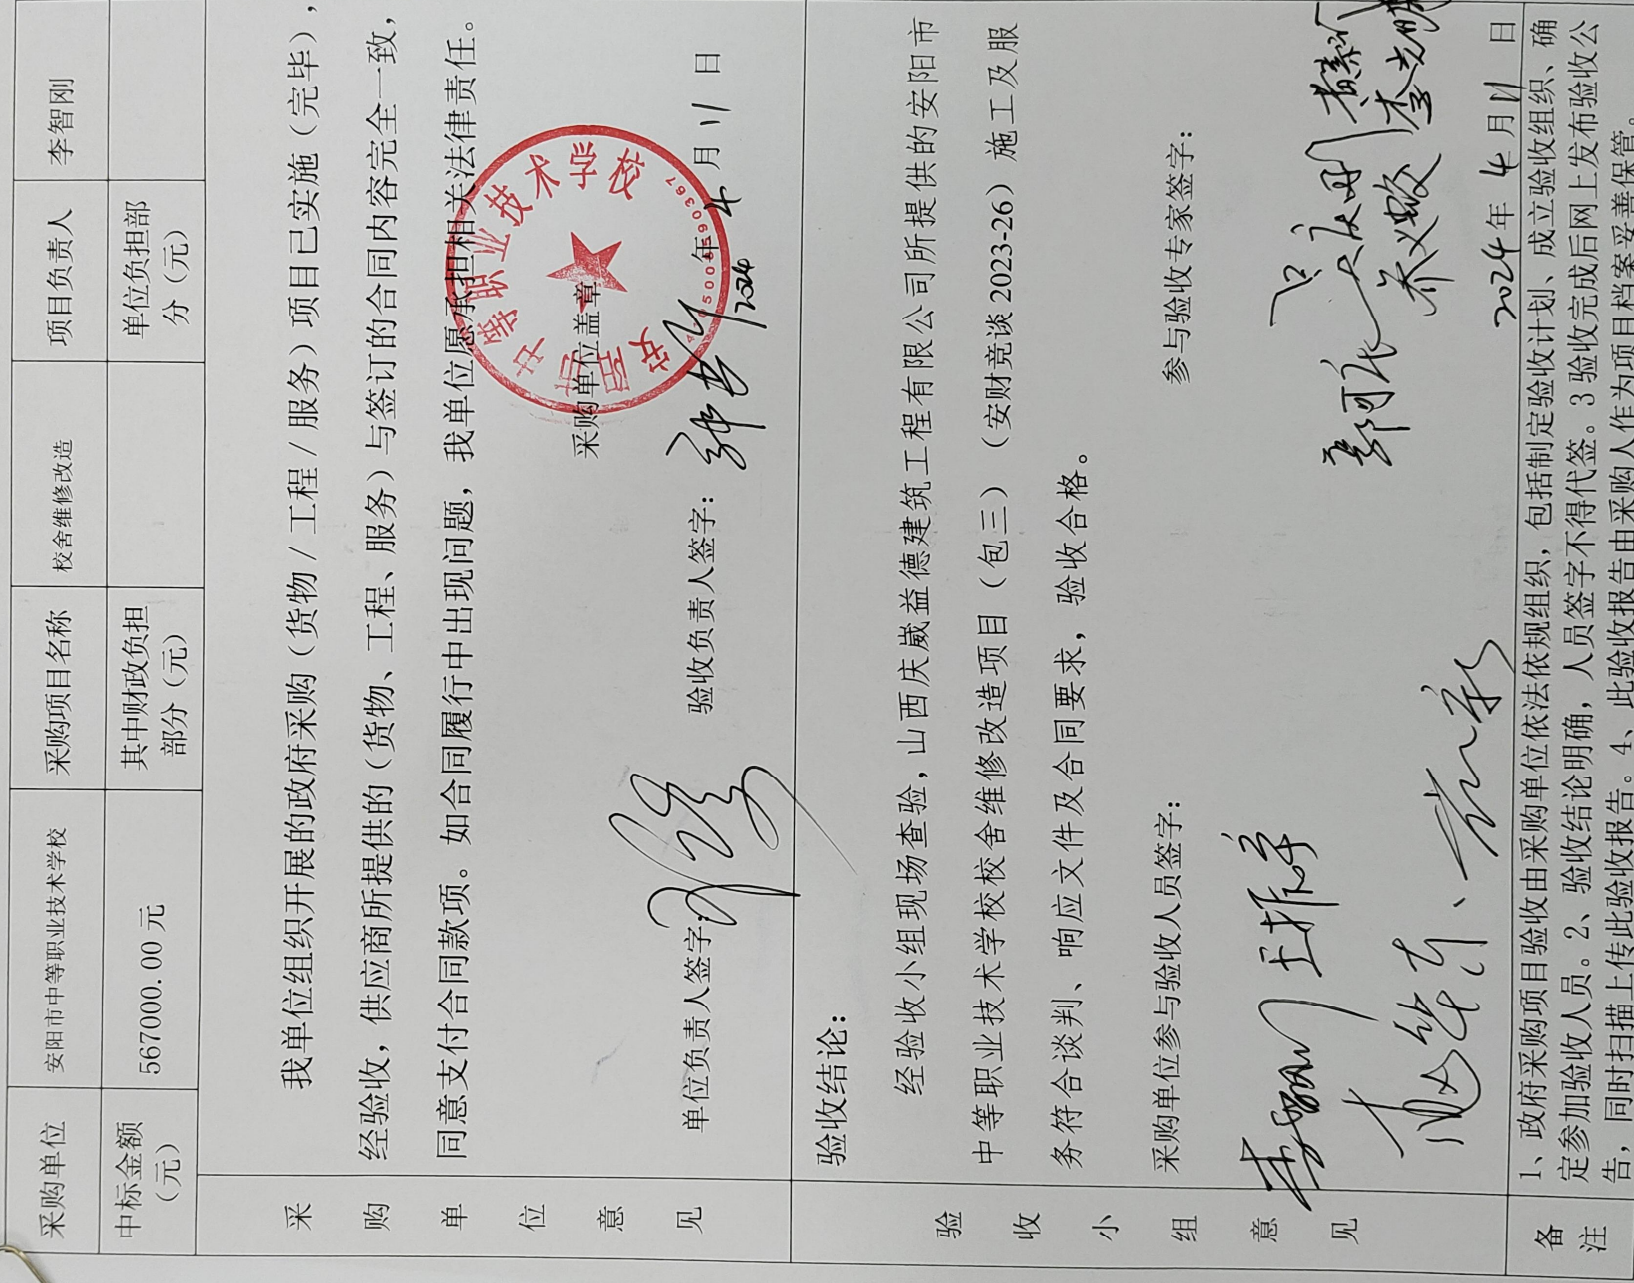 采购单位 安阳市中等职业技术学校 采购项目名称 校舍维修改造 项目负责人 李智刚
中标金额（元） 567000.00 元 其中财政负担部分（元） 单位负担部分（元）
采购单位意见
我单位组织开展的政府采购（货物/工程/服务）项目已实施（完毕），
经验收，供应商所提供的（货物、工程、服务）与签订的合同内容完全一致，
同意支付合同款项。如合同履行中出现问题，我单位愿承担相关法律责任。
采购单位盖章
安阳市中等职业技术学校
单位负责人签字： 验收负责人签字：
2024年4月11日
验收小组意见
验收结论：
经验收小组现场查验，山西庆崴益德建筑工程有限公司所提供的安阳市
中等职业技术学校校舍维修改造项目（包三）（安财竞谈2023-26）施工及服
务符合谈判、响应文件及合同要求，验收合格。
采购单位参与验收人员签字： 参与验收专家签字：
李智刚 王振祥
2024年4月11日
备注
1、政府采购项目验收由采购单位依法依规组织，包括制定验收计划、成立验收组织、确
定参加验收人员。2、验收结论明确，人员签字不得代签。3验收完成后网上发布验收公
告，同时扫描上传此验收报告。4、此验收报告由采购人作为项目档案妥善保管。